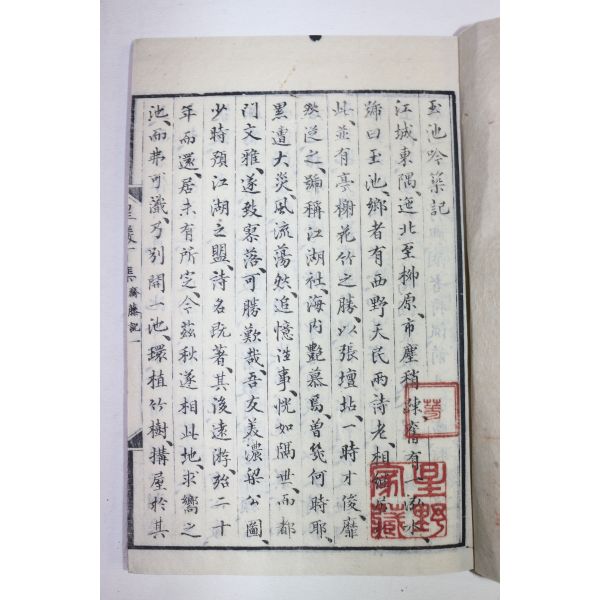 玉池吟榘記
江城東隅、迤北至柳原、市塵稍踈、舊有一
號曰玉池、鄉者有西野天民兩詩老、相
此、並有亭榭花竹之勝、以張壇坫、一時才俊靡
然從之、號稱江湖社、海内艷慕焉、曾幾何時耶、
黑遭大災、風流蕩然、追憶徃事、恍如隔世、而都
門文雅、遂致寥落、可勝歎哉、吾友美濃梁公圖
少時預江湖之盟、詩名旣著、其後遠游、殆二十
年而還、居未有所定、今茲秋遂相此地、求嚮之
池、而弗可識、乃別開一池、環植竹樹、搆屋於其
星野家藏
集 齋藤記 一